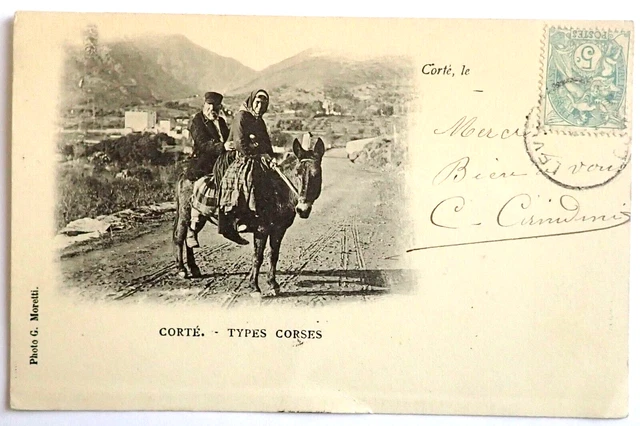 Corté, le
Merci
Bien à vous
C. 
POSTES
5
CORTÉ. - TYPES CORSES
Photo G. Moretti.